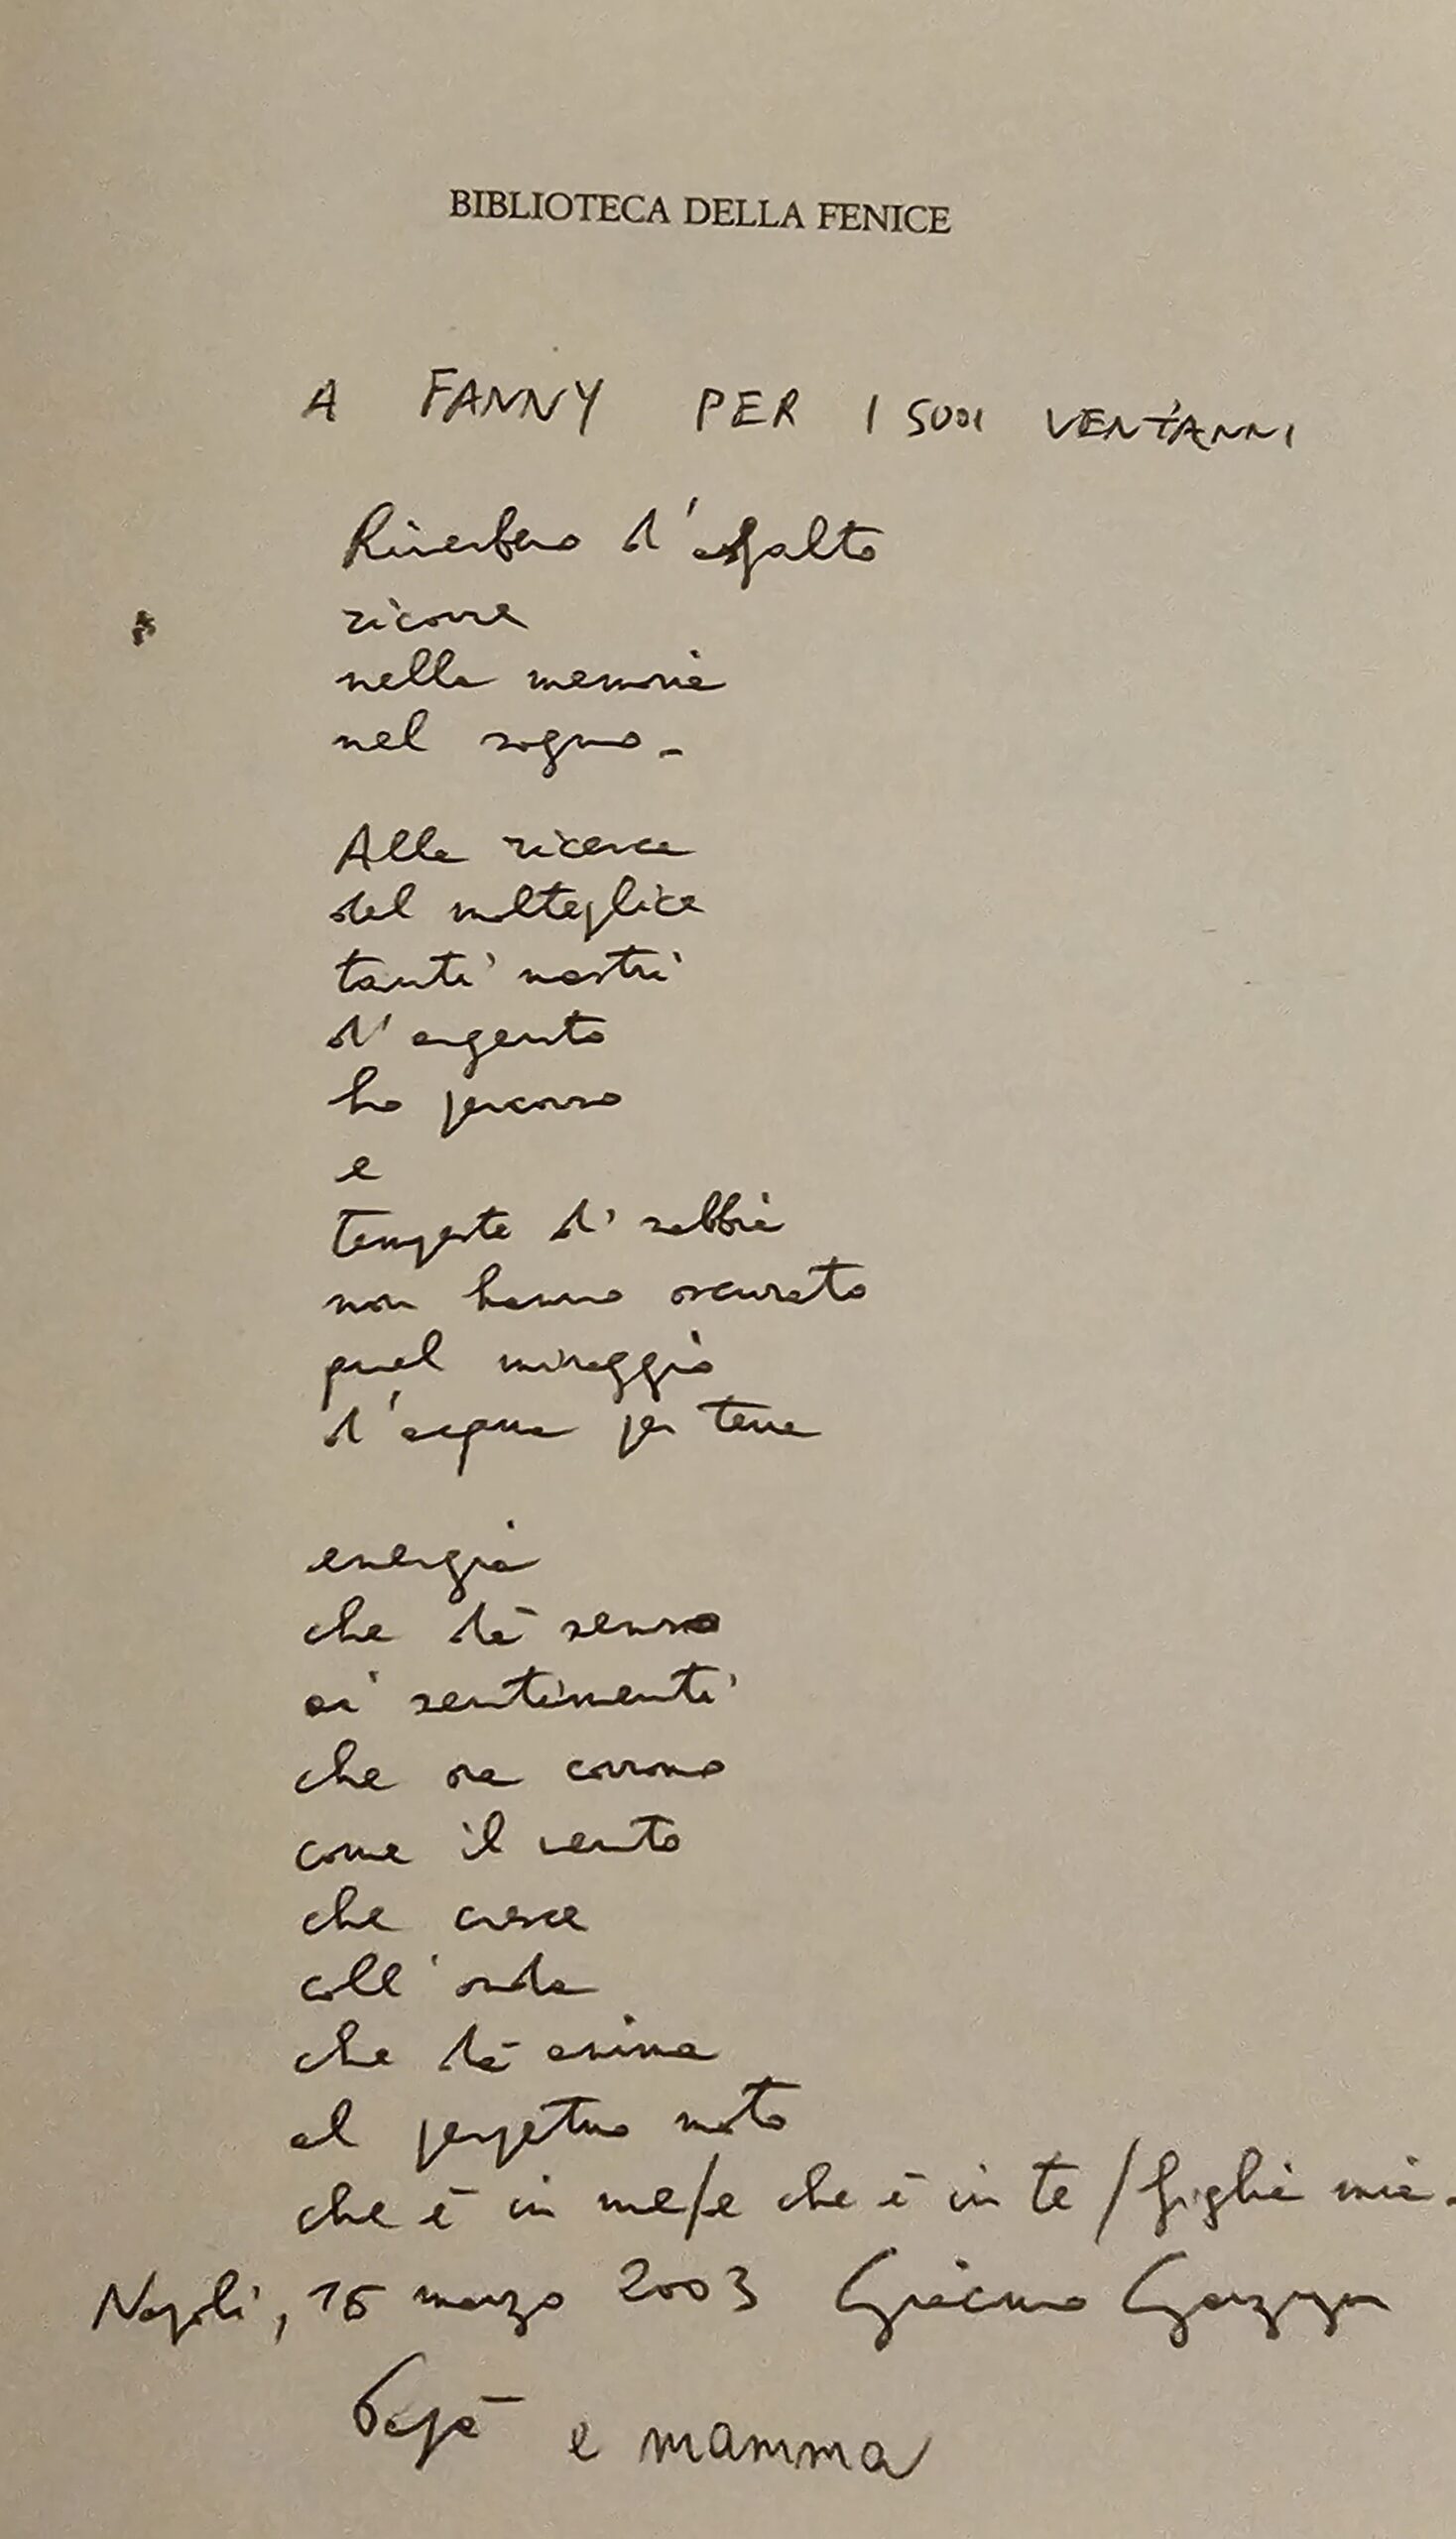 BIBLIOTECA DELLA FENICE
A FANNY PER I SUOI VENT'ANNI
Riverbero d'asfalto
ricorre
nella memoria
nel sogno.
Alla ricerca
del molteplice
tanti nastri
d'argento
ho percorso
e
tempeste di sabbia
non hanno oscurato
quel miraggio
d'acqua per terra
energia
che dà senso
ai sentimenti
che ora corrono
come il vento
che cresce
coll'onda
che dà anima
al perpetuo moto
che è in me/e che è in te / figlia mia.
Napoli, 15 marzo 2003 Giacomo Garzya
Papà e mamma